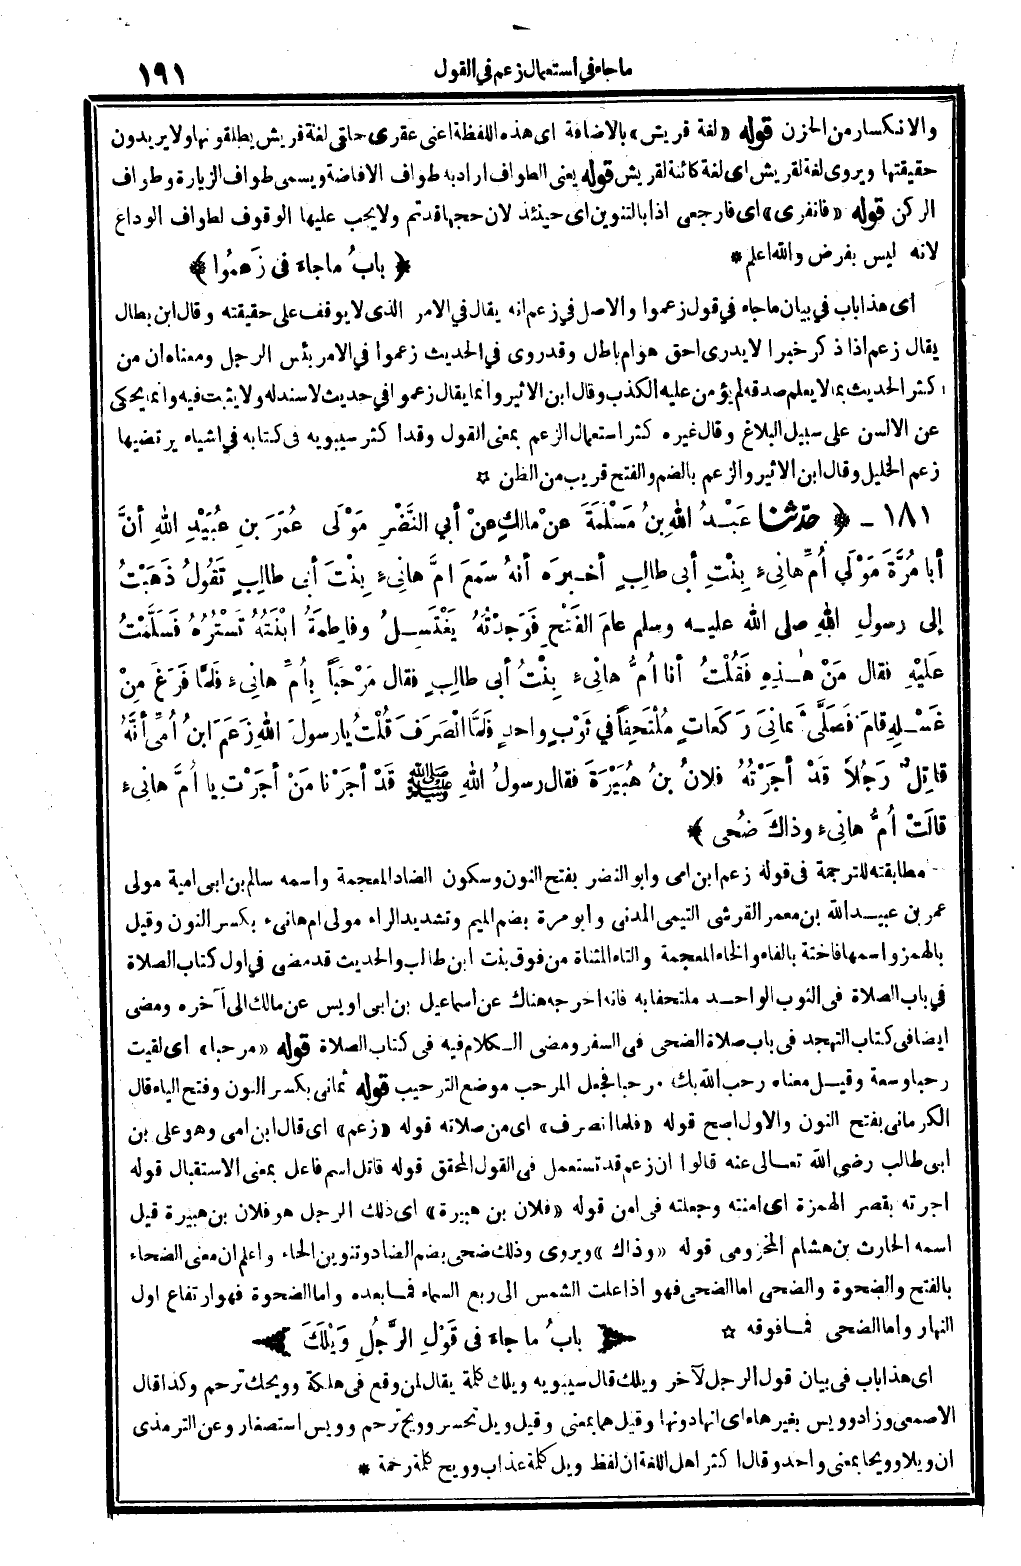 ما جاء في استعمال زعم في القول
١٩١
والانكسار من الحزن قوله «لغة قريش» بالاضافة اى هذه اللفظة اعنى عقرى حلقى لغة قريش يطلقونها ولا يريدون
حقيقتها ويروى لغة لقريش اى لغة كائنة لقريش قوله يعنى الطواف اراد به طواف الافاضة ويسمى طواف الزيارة وطواف
الركن قوله «فانفرى» اى فارجعى اذا بالتنوين اى حينئذ لان حجها قدتم ولا يجب عليها الوقوف لطواف الوداع
لانه ليس بفرض والله اعلم *
﴿ بابُ ما جاءَ فى زَعَمُوا ﴾
اى هذا باب في بيان ما جاء في قول زعموا والاصل في زعم انه يقال في الامر الذى لا يوقف على حقيقته وقال ابن بطال
يقال زعم اذا ذكر خبرا لا يدرى احق هو ام باطل وقد روى في الحديث زعموا في الامر بئس الرجل ومعناه ان من
اكثر الحديث بما لا يعلم صدقه لم يؤمن عليه الكذب وقال ابن الاثير وانما يقال زعموا في حديث لا سند له ولا يثبت فيه وانما يحكى
عن الالسن على سبيل البلاغ وقال غيره كثر استعمال الزعم بمعنى القول وقد اكثر سيبويه فى كتابه في اشياء يرتضيها
زعم الخليل وقال ابن الاثير والزعم بالضم والفتح قريب من الظن ☆
١٨١ - ﴿ حدّثنا عَبْدُ اللهِ بنُ مَسْلَمَةَ عنْ مالكٍ عنْ أبي النَّضْرِ مَوْلَى عُمَرَ بنِ عُبَيْدِ اللهِ أنَّ
أبا مُرَّةَ مَوْلَي أُمِّ هانِىءِ بِنْتِ أبى طالِبٍ أخبرَه أنهُ سَمَعَ امَّ هانِىءٍ بِنْتَ أبى طالِبٍ تَقُولُ ذَهَبْتُ
إلى رسولِ اللهِ صلى الله عليه وسلم عامَ الفَتْحِ فَوَجَدْتُهُ يَغْتَسِلُ وفاطِمَةُ ابْنَتُهُ تَسْتُرُهُ فَسَلَّمْتُ
عَلَيْهِ فقال مَنْ هٰذِهِ فَقُلْتُ أنا أُمُّ هانِىءٍ بِنْتُ أبى طالِبٍ فقال مَرْحَباً بِأُمِّ هانِىءٍ فَلمَّا فَرَغَ مِنْ
غَسْلِهِ قامَ فَصَلَّى ثَمانِىَ رَكَعاتٍ مُلْتَحِفاً في ثَوْبٍ واحدٍ فَلمَّا انْصَرَفَ قُلْتُ يا رسولَ اللهِ زَعَمَ ابنُ أُمِّى أنَّهُ
قاتِلٌ رَجُلاً قَدْ أجَرْتُهُ فلانُ بنُ هُبَيْرَةَ فقال رسولُ اللهِ ﷺ قَدْ أجَرْنا مَنْ أجَرْتِ يا أُمَّ هانِىءٍ
قالَتْ أُمُّ هانِىءٍ وذاكَ ضُحًى ﴾
مطابقته للترجمة فى قوله زعم ابن امى وابو النضر بفتح النون وسكون الضاد المعجمة واسمه سالم بن ابى امية مولى
عمر بن عبيد الله بن معمر القرشى التيمى المدنى وابو مرة بضم الميم وتشديد الراء مولى ام هانىء بكسر النون وقيل
بالهمز واسمها فاختة بالفاء والخاء المعجمة والتاء المثناة من فوق بنت ابن طالب والحديث قد مضى في اول كتاب الصلاة
في باب الصلاة فى الثوب الواحد ملتحفا به فانه اخرجه هناك عن اسماعيل بن ابى اويس عن مالك الى آخره ومضى
ايضا فى كتاب التهجد فى باب صلاة الضحى فى السفر ومضى الكلام فيه فى كتاب الصلاة قوله «مرحبا» اى لقيت
رحبا وسعة وقيل معناه رحب الله بك مرحبا فجعل المرحب موضع الترحيب قوله ثمانى بكسر النون وفتح الياء قال
الكرمانى بفتح النون والاول اصح قوله «فلما انصرف» اى من صلاته قوله «زعم» اى قال ابن امى وهو على بن
ابى طالب رضى الله تعالى عنه قالوا ان زعم قد تستعمل فى القول المحقق قوله قاتل اسم فاعل بمعنى الاستقبال قوله
اجرته بقصر الهمزة اى امنته وجعلته فى امن قوله «فلان بن هبيرة» اى ذلك الرجل هو فلان بن هبيرة قيل
اسمه الحارث بن هشام المخزومى قوله «وذاك» ويروى وذلك ضحى بضم الضاد وتنوين الحاء واعلم ان معنى الضحاء
بالفتح والضحوة والضحى اما الضحى فهو اذا علت الشمس الى ربع السماء فما بعده واما الضحوة فهو ارتفاع اول
النهار واما الضحى فما فوقه ☆
﴿ بابُ ما جاءَ فى قَوْلِ الرَّجُلِ وَيْلَكَ ﴾
اى هذا باب فى بيان قول الرجل لآخر ويلك قال سيبويه ويلك كلمة يقال لمن وقع فى هلكة وويحك ترحم وكذا قال
الاصمعى وزاد وويس بغير هاء اى انها دونها وقيل هما بمعنى وقيل ويل تحسر وويح ترحم وويس استصغار وعن الترمذى
ان ويلا وويحا بمعنى واحد وقال اكثر اهل اللغة ان لفظ ويل كلمة عذاب وويح كلمة رحمة *